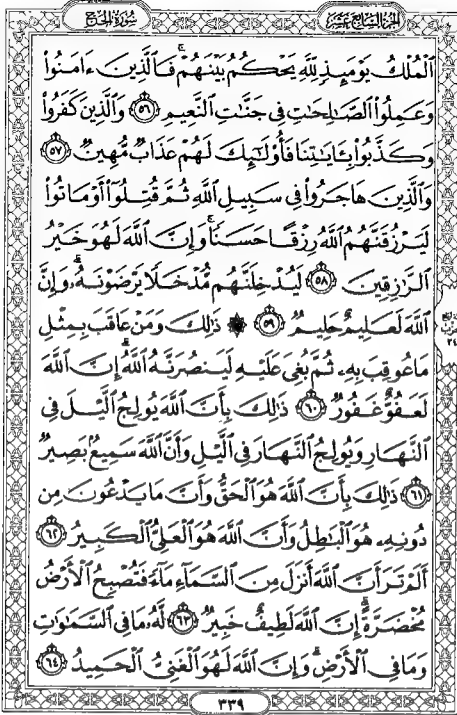 سُورَةُ الحَجِّ الجُزْءُ السَّابِعَ عَشَرَ
ٱلْمُلْكُ يَوْمَئِذٍ لِّلَّهِ يَحْكُمُ بَيْنَهُمْ ۚ فَٱلَّذِينَ ءَامَنُوا۟
وَعَمِلُوا۟ ٱلصَّـٰلِحَـٰتِ فِى جَنَّـٰتِ ٱلنَّعِيمِ ٥٦ وَٱلَّذِينَ كَفَرُوا۟
وَكَذَّبُوا۟ بِـَٔايَـٰتِنَا فَأُو۟لَـٰٓئِكَ لَهُمْ عَذَابٌ مُّهِينٌ ٥٧
وَٱلَّذِينَ هَاجَرُوا۟ فِى سَبِيلِ ٱللَّهِ ثُمَّ قُتِلُوٓا۟ أَوْ مَاتُوا۟
لَيَرْزُقَنَّهُمُ ٱللَّهُ رِزْقًا حَسَنًا ۚ وَإِنَّ ٱللَّهَ لَهُوَ خَيْرُ
ٱلرَّٰزِقِينَ ٥٨ لَيُدْخِلَنَّهُم مُّدْخَلًا يَرْضَوْنَهُۥ ۗ وَإِنَّ
ٱللَّهَ لَعَلِيمٌ حَلِيمٌ ٥٩ ۞ ذَٰلِكَ وَمَنْ عَاقَبَ بِمِثْلِ
مَا عُوقِبَ بِهِۦ ثُمَّ بُغِىَ عَلَيْهِ لَيَنصُرَنَّهُ ٱللَّهُ ۗ إِنَّ ٱللَّهَ
لَعَفُوٌّ غَفُورٌ ٦٠ ذَٰلِكَ بِأَنَّ ٱللَّهَ يُولِجُ ٱلَّيْلَ فِى
ٱلنَّهَارِ وَيُولِجُ ٱلنَّهَارَ فِى ٱلَّيْلِ وَأَنَّ ٱللَّهَ سَمِيعٌۢ بَصِيرٌ
٦١ ذَٰلِكَ بِأَنَّ ٱللَّهَ هُوَ ٱلْحَقُّ وَأَنَّ مَا يَدْعُونَ مِن
دُونِهِۦ هُوَ ٱلْبَـٰطِلُ وَأَنَّ ٱللَّهَ هُوَ ٱلْعَلِىُّ ٱلْكَبِيرُ ٦٢
أَلَمْ تَرَ أَنَّ ٱللَّهَ أَنزَلَ مِنَ ٱلسَّمَآءِ مَآءً فَتُصْبِحُ ٱلْأَرْضُ
مُخْضَرَّةً ۗ إِنَّ ٱللَّهَ لَطِيفٌ خَبِيرٌ ٦٣ لَّهُۥ مَا فِى ٱلسَّمَـٰوَٰتِ
وَمَا فِى ٱلْأَرْضِ ۗ وَإِنَّ ٱللَّهَ لَهُوَ ٱلْغَنِىُّ ٱلْحَمِيدُ ٦٤
٣٣٩